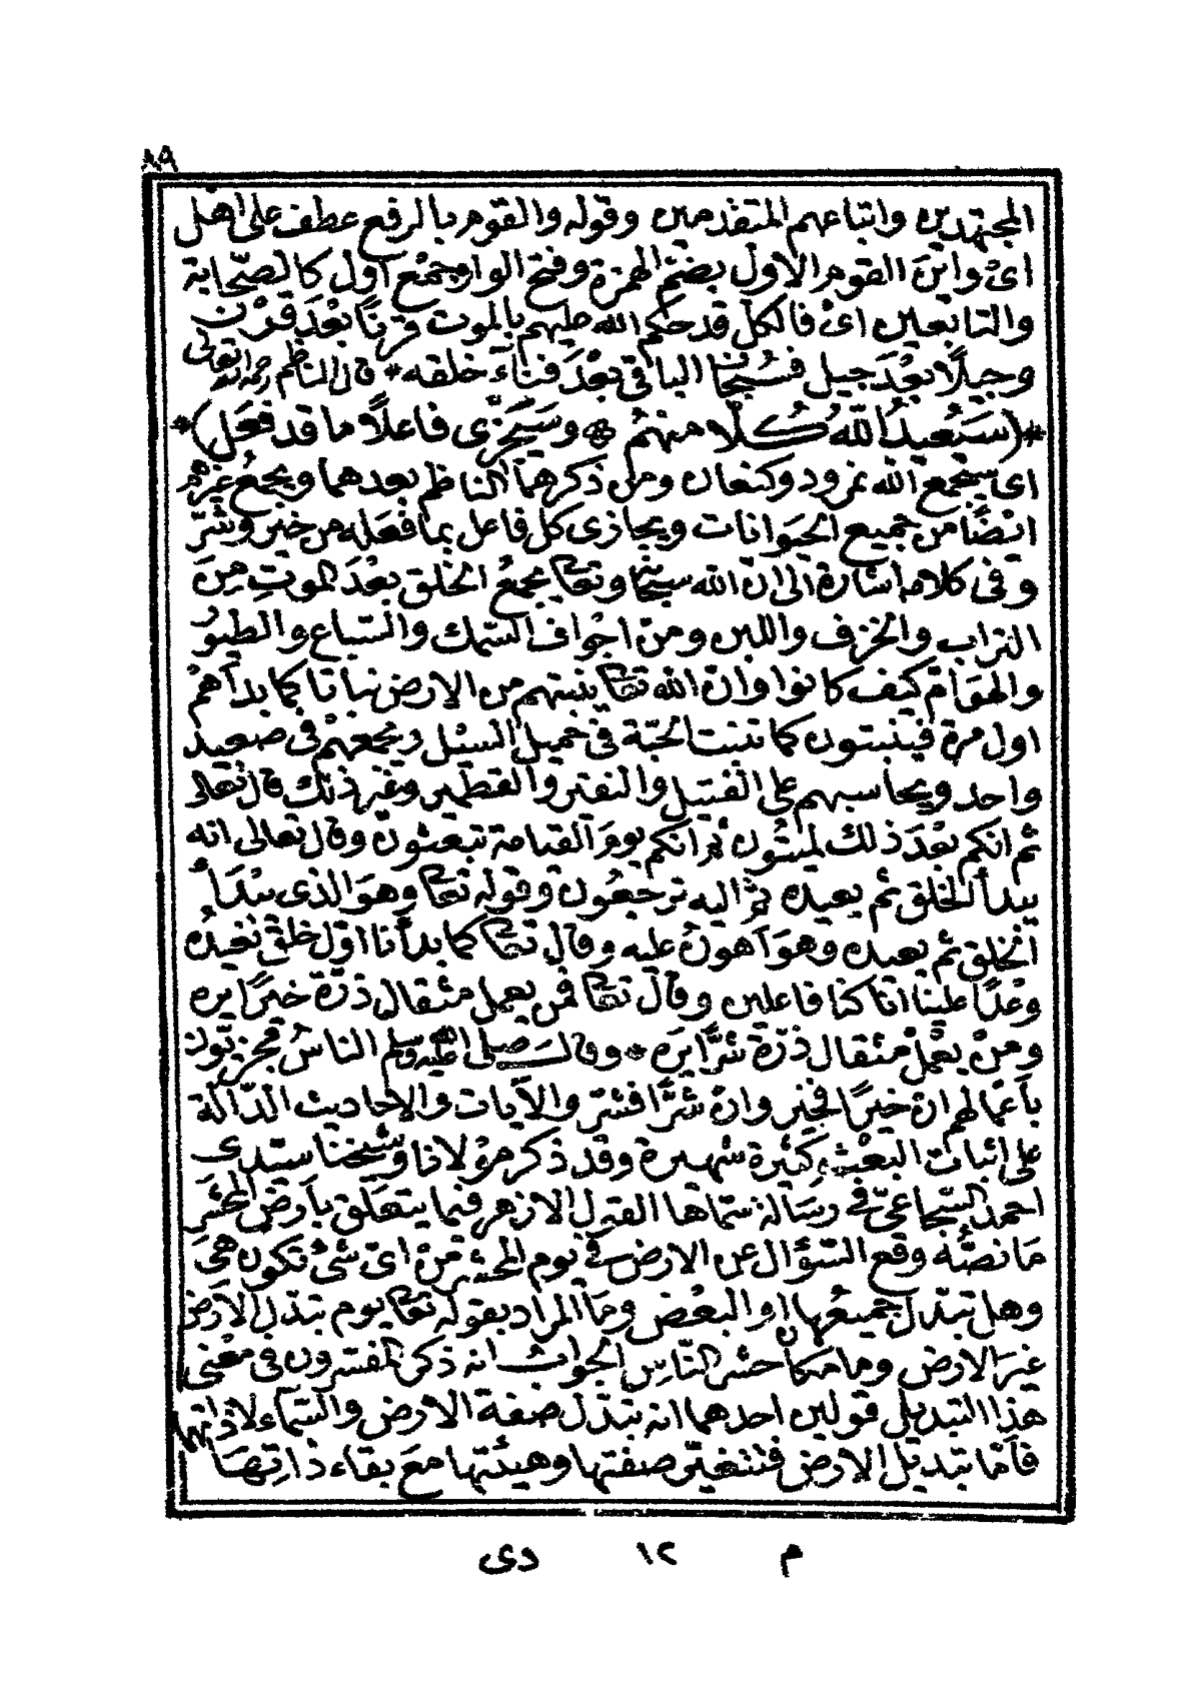 ٨٩
المجتهدين واتباعهم المتقدمين وقوله والقوم بالرفع عطف على اهل
اىْ وابنَ القوم الاُوَل بضمّ الهمزة وفتح الواو جمْع اول كالصّحابة
والتابعين اىْ فالكلّ قد حكم الله عليهم بالموت قرنًا بعْدَ قرْن
وجيلًا بعْدَ جيل فسُبْحان الباقى بعْدَ فناَء خلقه * قال الناظم رحمه الله تعالى
*(سَيُعيدُ اللهُ كُلًّا منهمُ ۞ وسَيَجْزى فاعلًا ما قد فعَل)*
اى سيجْمع الله نمرود وكنعان ومن ذكرهمُ الناظم بعدهما ويجمعُ غيرهم
ايْضًا من جميع الحيَوانات ويجازى كل فاعل بما فعَله من خيْر وشَرّ
وفى كلامه اشارة الى ان الله سبحانه وتعالى يجمعُ الخلق بعْدَ الموتِ مِنَ
التراب والخزف واللبن ومن اجْواف السّمك والسّباع والطيورُ
والهَوَامّ كيف كانوا وان الله تعالى ينبتهم من الارض نباتا كما بدأهمْ
اول مرة فينبتون كما تنبت الحبّة فى حميل السيْل ويجمعهمْ فى صَعيد
واحد ويحاسبهم على الفتيل والنقير والقطمير وغير ذلك قال تعالى
ثم انكم بعْدَ ذلك لميتُون ثم انكم يومَ القيامة تبعثون وقال تعالى انه
يبدأ الخلق ثم يعيده ثم اليه ترجعُون وقوله تعالى وهوَ الذى يبْدَأُ
الخلق ثم يعيده وهوَ أهونُ عليه وقال تعالى كما بدأنا اوّل خلق نعيدُه
وعْدًا علينا انا كنا فاعلين وقال تعالى فمن يعمل مثقال ذرّة خيرًا يره
ومن يعْملْ مثقال ذرّة شرًّا يرَه * وقال صلى الله عليه وسلم الناسُ مجزيّون
بأعمالهم ان خيرًا فخير وان شرًّا فشر والآيات والاحاديث الدّالة
على اثبات البعْث كثيرة شهيرة وقد ذكر موْلانا وشيخنا سيّدى
احمد السّجاعىّ فى رسَالة سمّاها القول الازهر فيما يتعلق بأرض المحْشَر
مَا نصّه وقع السّؤال عن الارض فى يوم المحشر منْ اىّ شئ تكون هىَ
وهل تبدّل جميعُها او البعْض ومَا المراد بقوله تعالى يوم تبدّل الارض
غيرَ الارض وما مكان حشر النّاسِ الجواب انه ذكر المفسرون فى معْنى
هذا التبديل قولين احدهما انه تبدّل صفة الارض والسّماء لا ذاتهما
فأمّا تبديل الارض فتتغيّر صفتها وهيئتها معَ بقاء ذاتهَا
م ١٢ دى